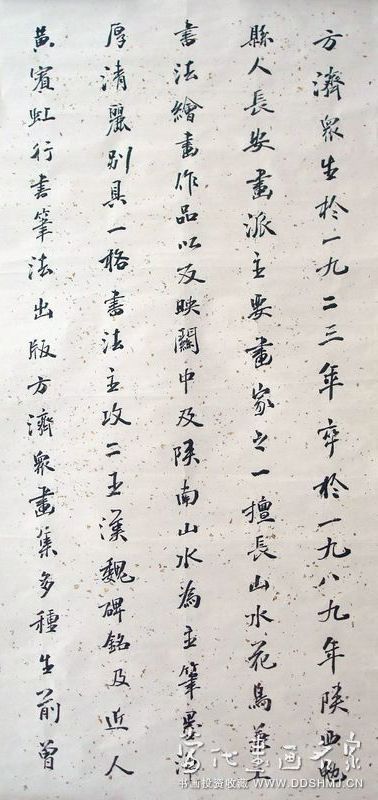 方濟衆生於一九二三年卒於一九八九年陝西勉
縣人長安畫派主要畫家之一擅長山水花鳥兼工
書法繪畫作品以反映關中及陝南山水為主筆墨渾
厚清麗別具一格書法主攻二王漢魏碑銘及近人
黃賓虹行書筆法出版方濟衆畫集多種生前曾
当代书画名家
书画投资收藏 WWW.DDSHMJ.CN